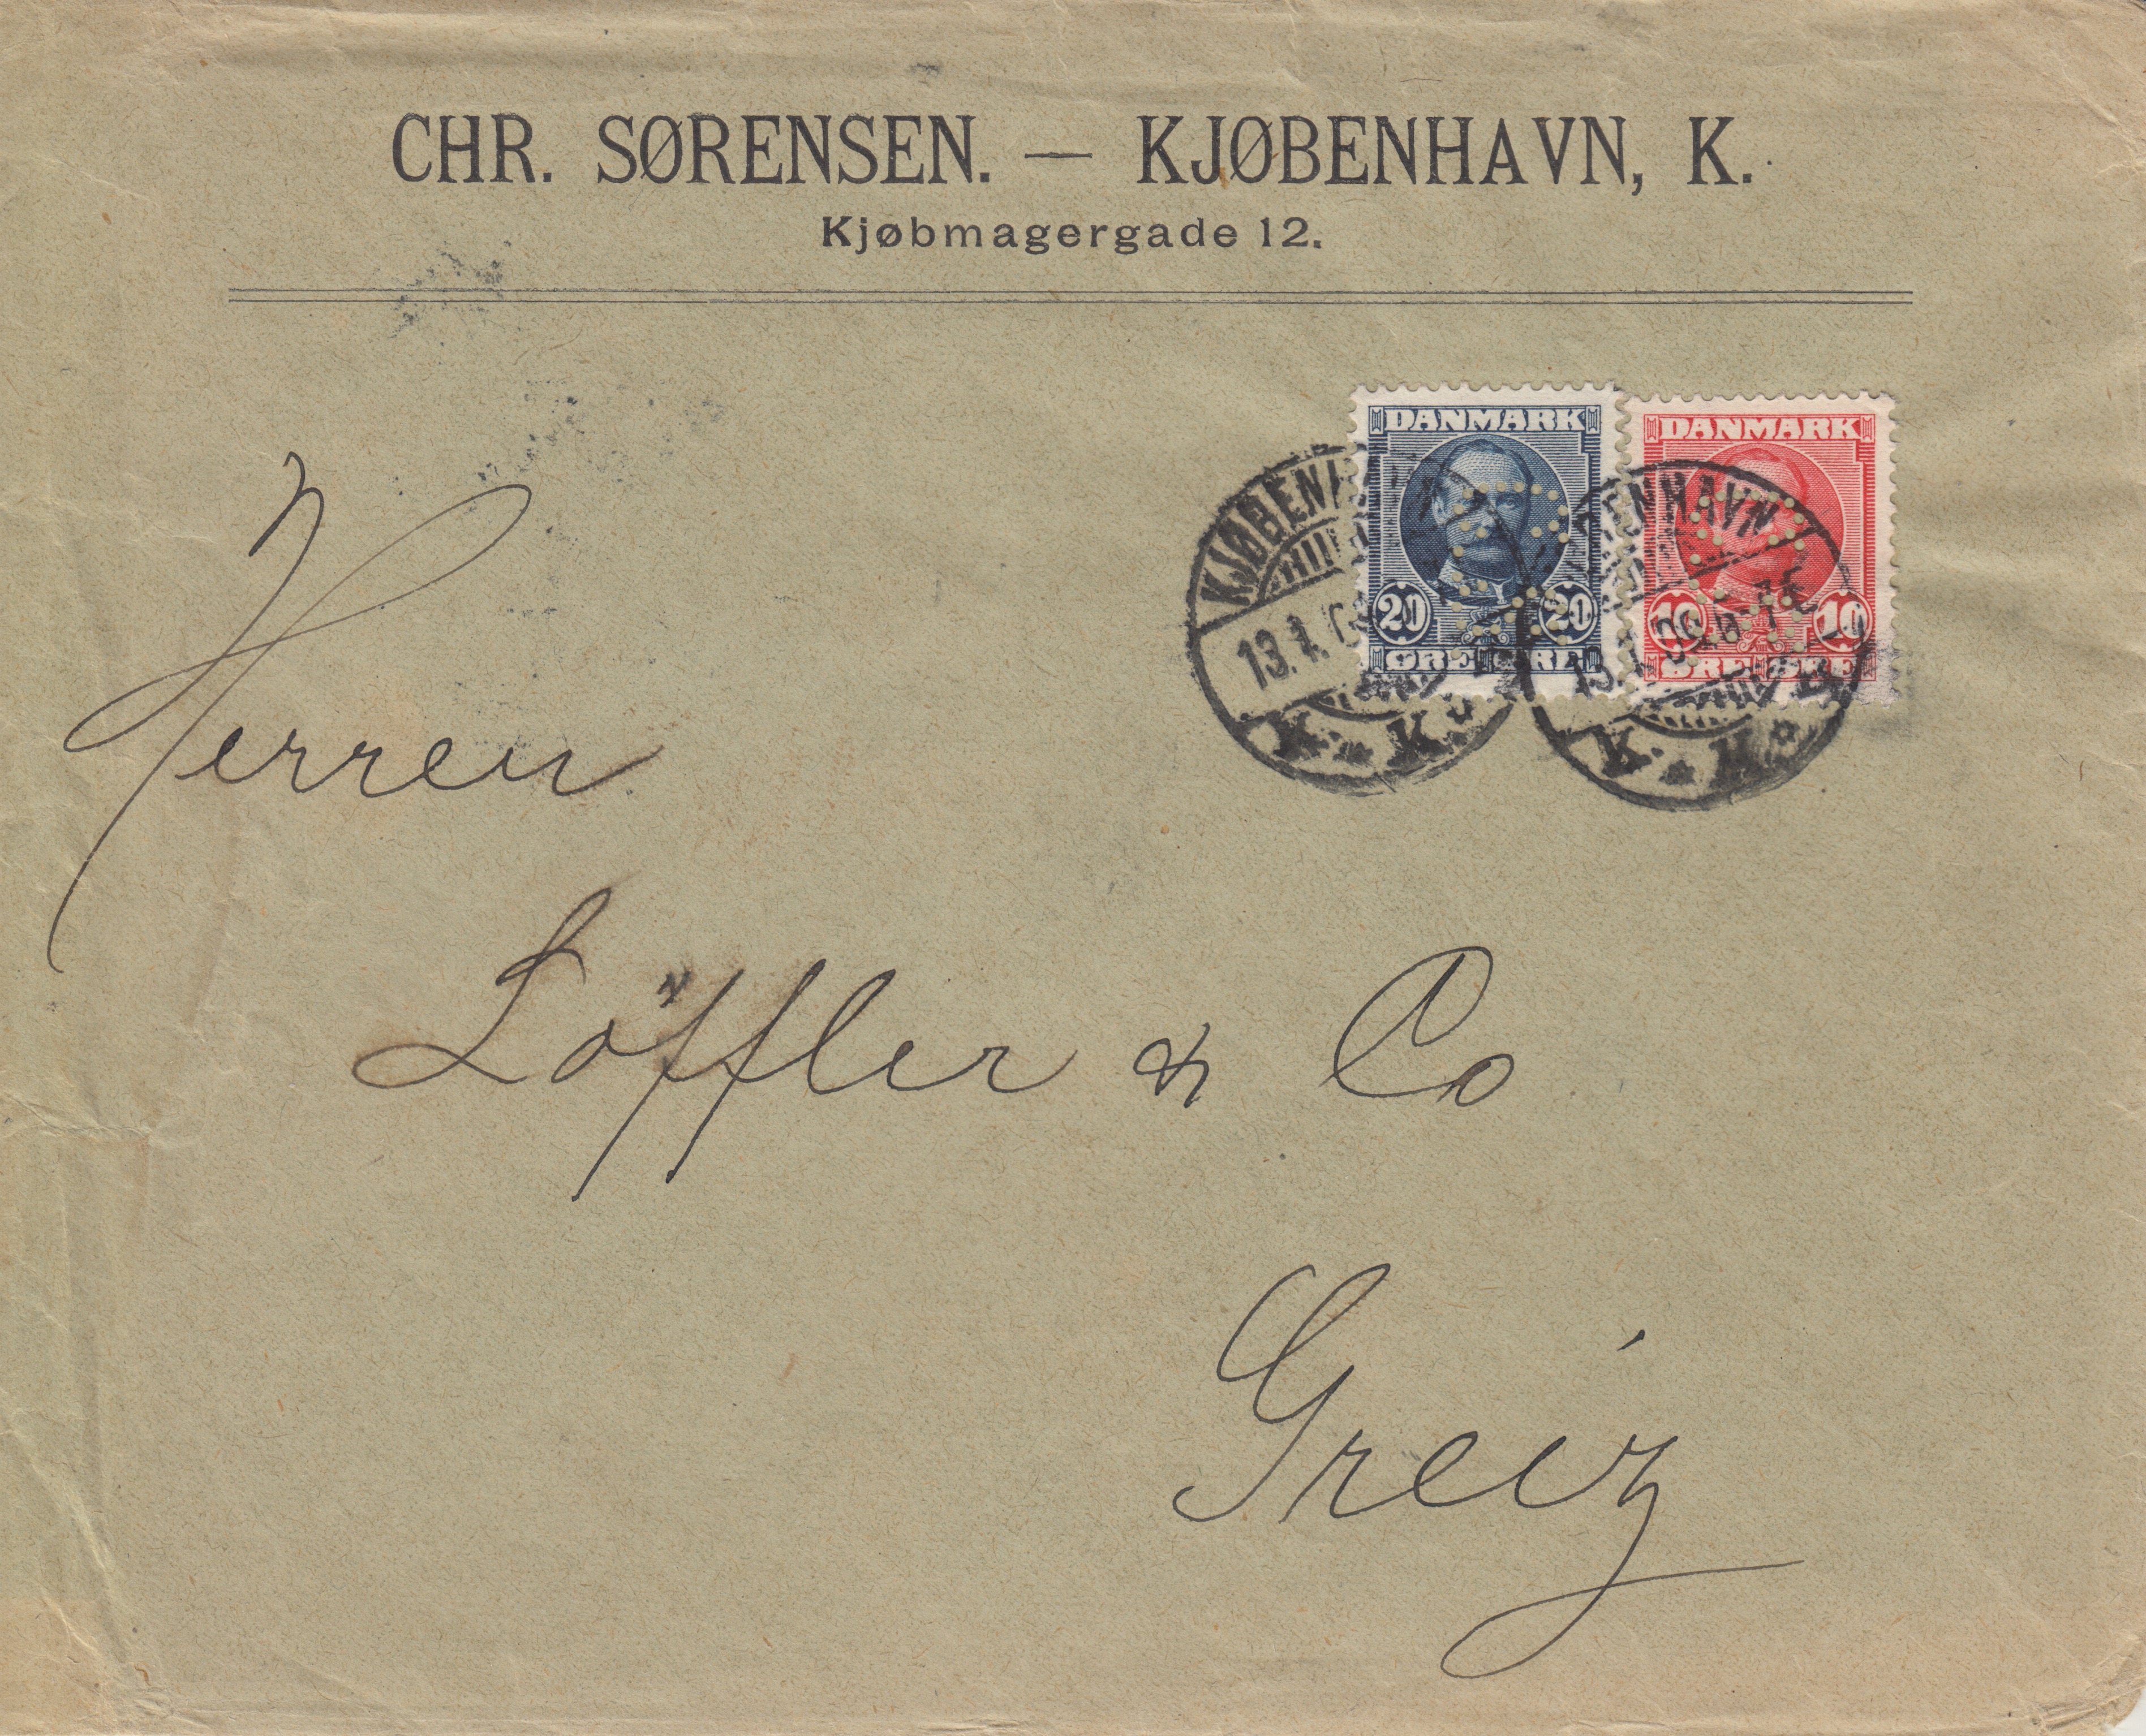 CHR. SØRENSEN. — KJØBENHAVN, K.
Kjøbmagergade 12.
DANMARK
20 20
ØRE ØRE
DANMARK
10 10
ØRE ØRE
KJØBENHAVN
13.1.
K. K.
KJØBENHAVN
13.1.09
K. K.
Herren
Löffler & Co
Greiz